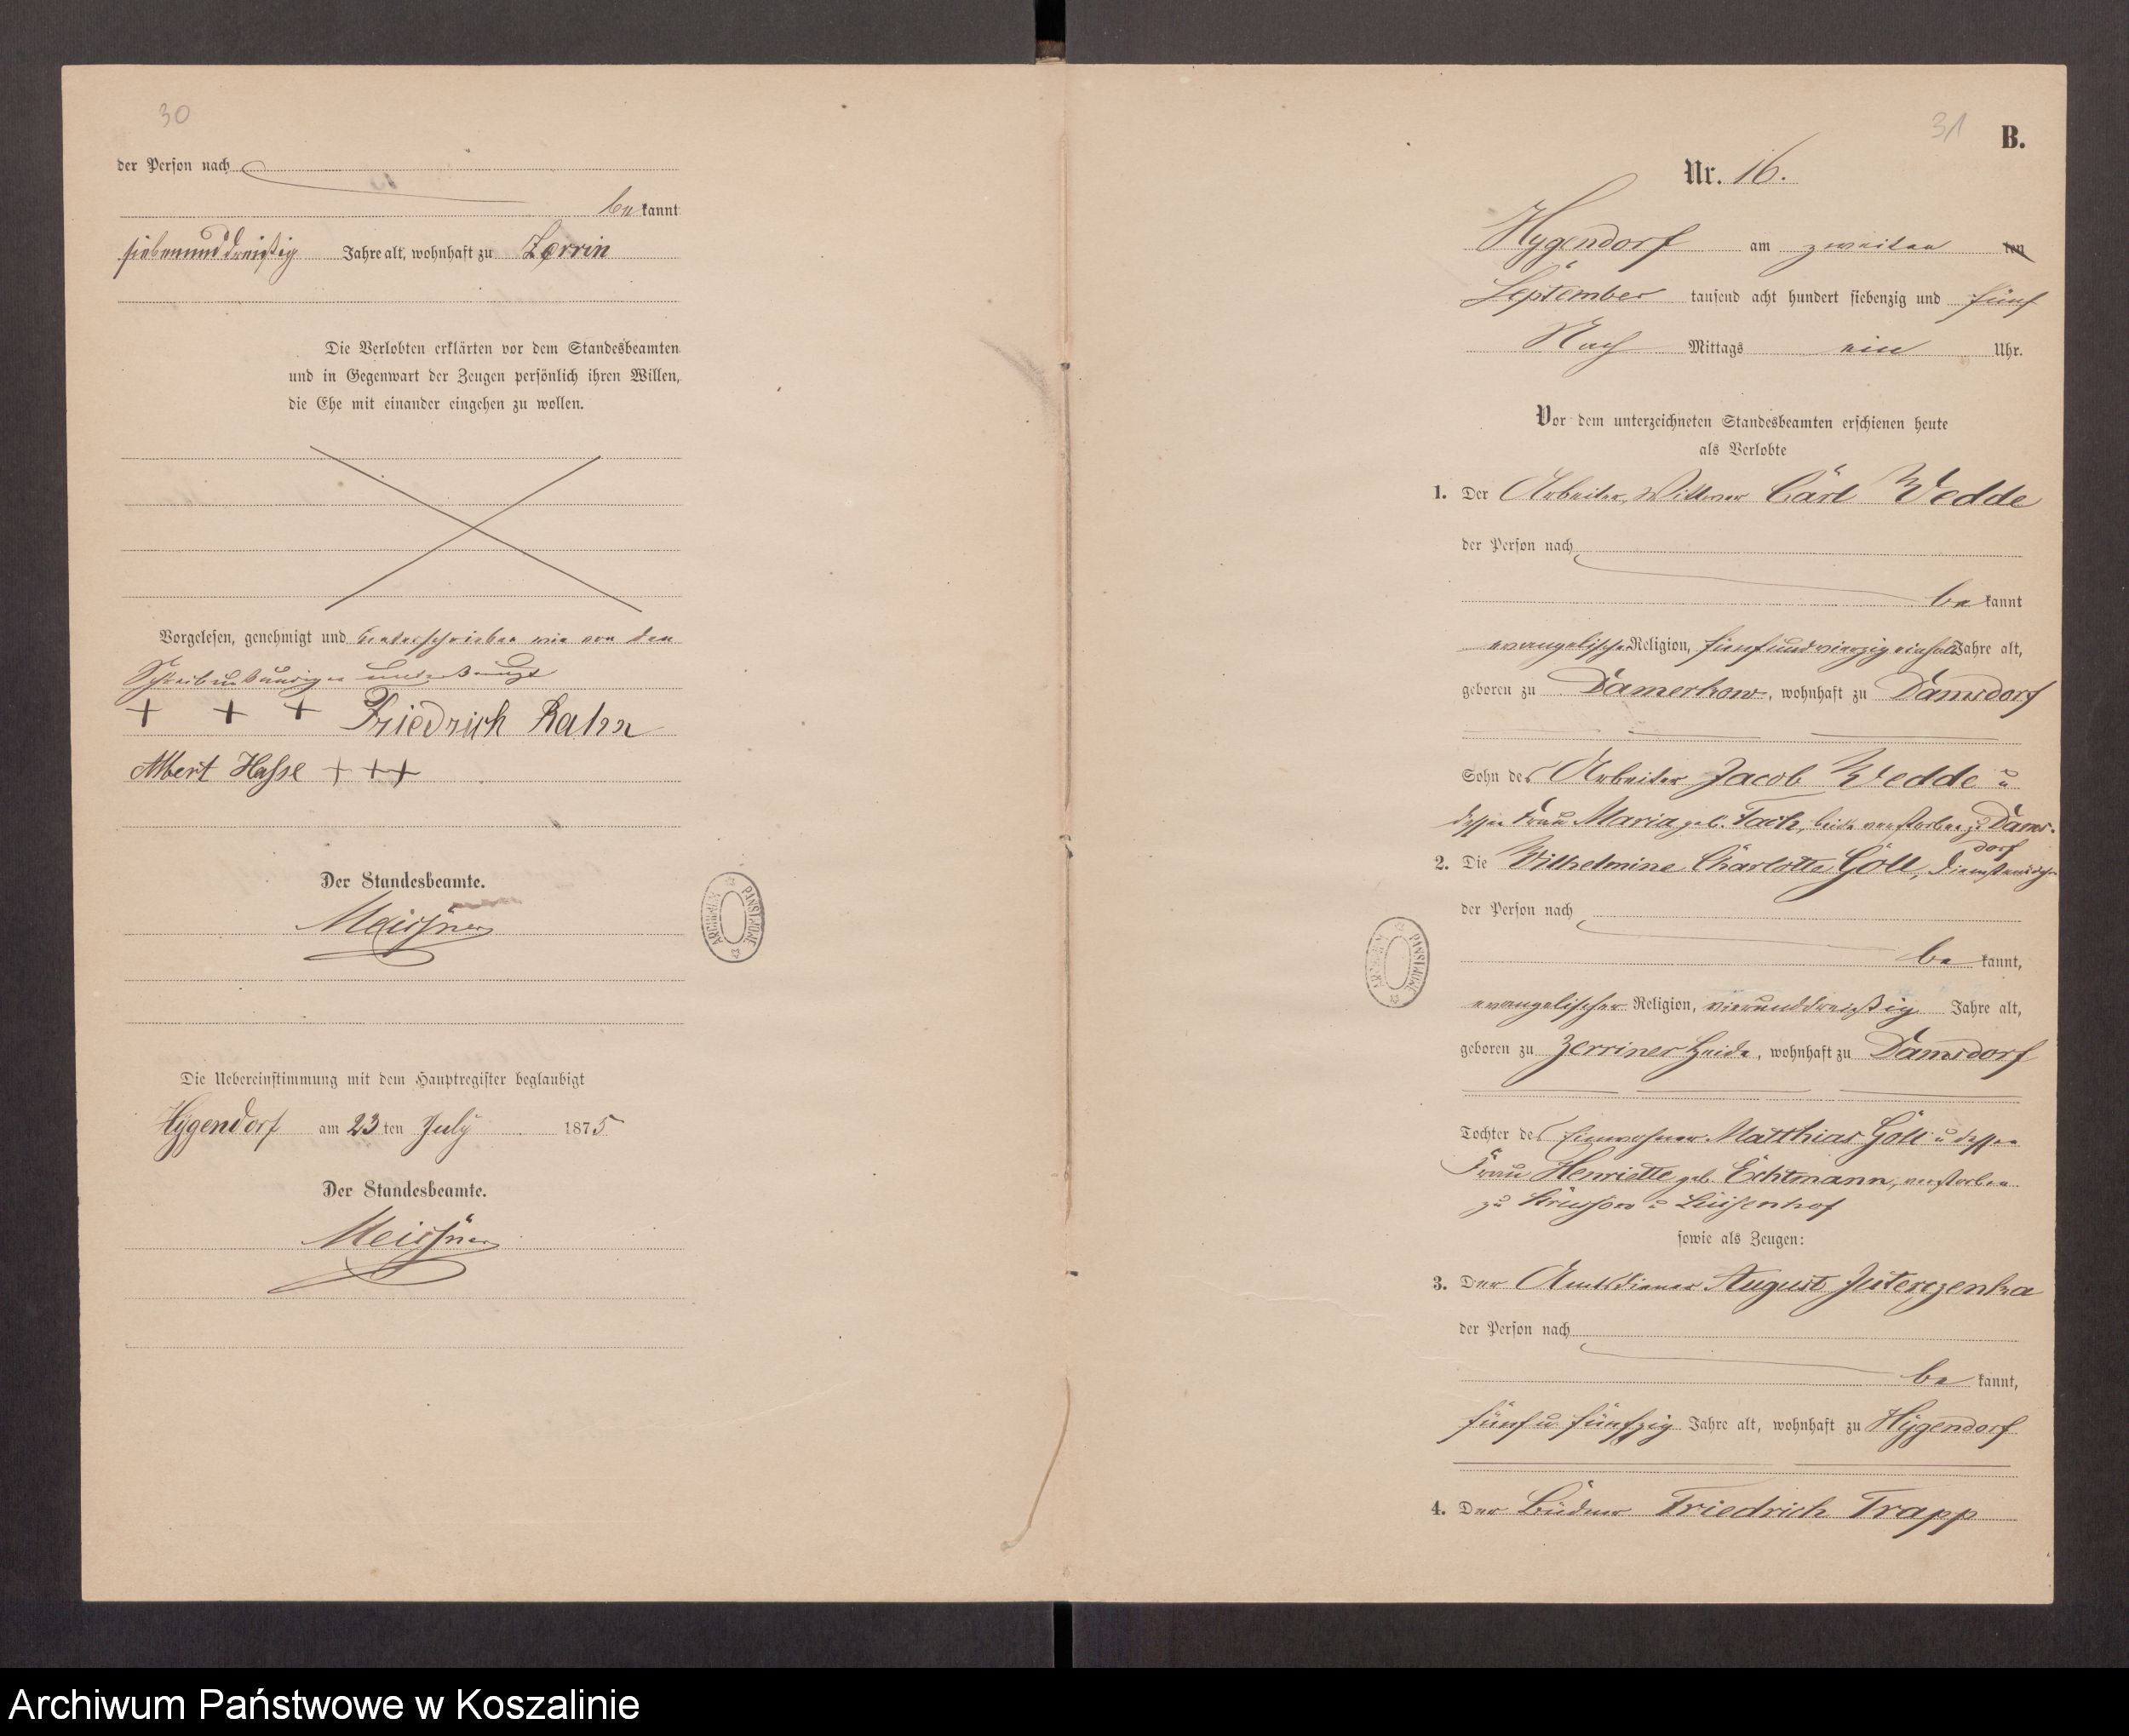 30
der Person nach
bekannt
siebenunddreißig Jahre alt, wohnhaft zu Zerrin
Die Verlobten erklärten vor dem Standesbeamten
und in Gegenwart der Zeugen persönlich ihren Willen,
die Ehe mit einander eingehen zu wollen.
Vorgelesen, genehmigt und unterschrieben wie von den
Schreibunkundigen unterkreuzt
+ + + Friedrich Rahn
Albert Hasse + + +
Der Standesbeamte.
Meissner
ARCHIWUM PAŃSTWOWE
Die Uebereinstimmung mit dem Hauptregister beglaubigt
Hygendorf am 23 ten July 1875
Der Standesbeamte.
Meissner
31
B.
Nr. 16.
Hygendorf am zweiten ten
September tausend acht hundert siebenzig und fünf
Nach Mittags ein Uhr.
Vor dem unterzeichneten Standesbeamten erschienen heute
als Verlobte
1. Der Arbeiter, Wittwer Carl Wedde
der Person nach
bekannt
evangelischer Religion, fünfundvierzig einhalb Jahre alt,
geboren zu Damerkow, wohnhaft zu Damsdorf
Sohn des Arbeiter Jacob Wedde u
dessen Frau Maria geb. Tach, beide verstorben zu Dams-
dorf
2. Die Wilhelmine Charlotte Göll, Dienstmädchen
der Person nach
bekannt,
evangelischer Religion, vierunddreißig Jahre alt,
geboren zu Zerriner Heide, wohnhaft zu Damsdorf
Tochter des Einwohner Matthias Göll u dessen
Frau Henriette geb. Echtmann, verstorben
zu u Luisenhof
sowie als Zeugen:
3. Der Amtsdiener August Juterzenka
der Person nach
bekannt,
fünf u fünfzig Jahre alt, wohnhaft zu Hygendorf
4. Der Büdner Friedrich Trapp
ARCHIWUM PAŃSTWOWE
Archiwum Państwowe w Koszalinie